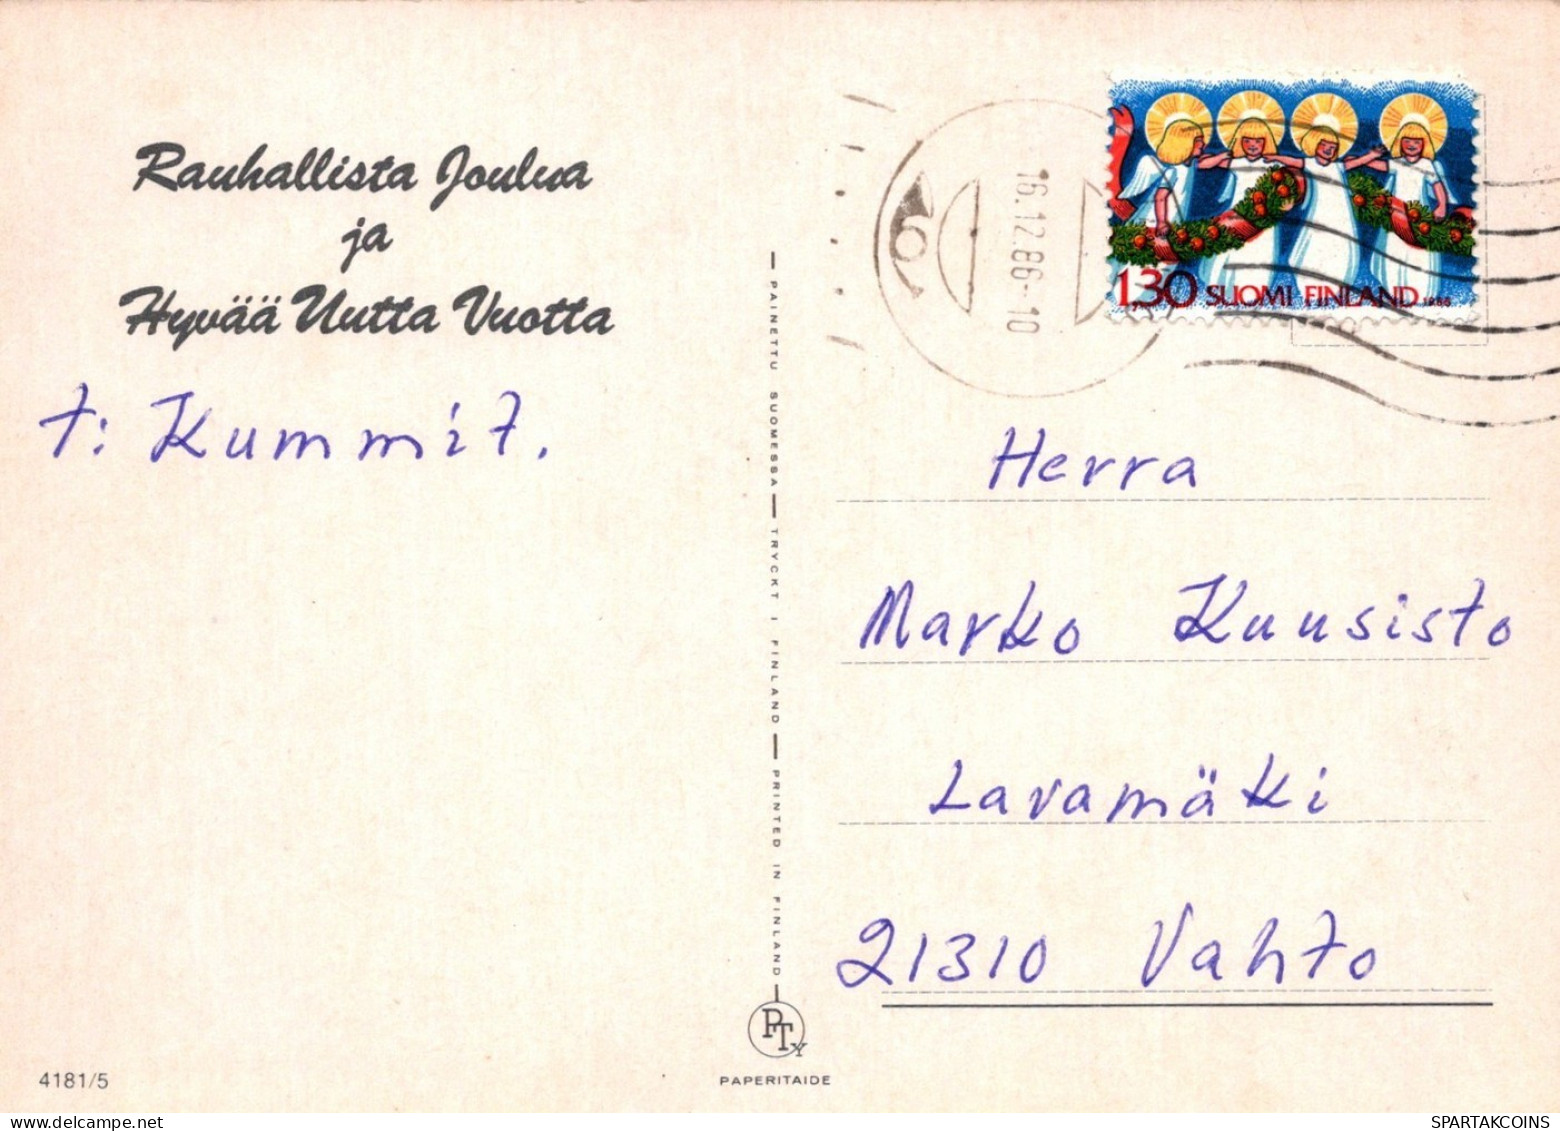 Rauhallista Joulua
ja
Hyvää Uutta Vuotta
T: Kummit.
4181/5
PAINETTU SUOMESSA — TRYCKT I FINLAND — PRINTED IN FINLAND
PTY
PAPERITAIDE
16.12.86-10
1,30 SUOMI FINLAND 1986
Herra
Marko Kuusisto
Lavamäki
21310 Vahto
SPARTAKCOINS